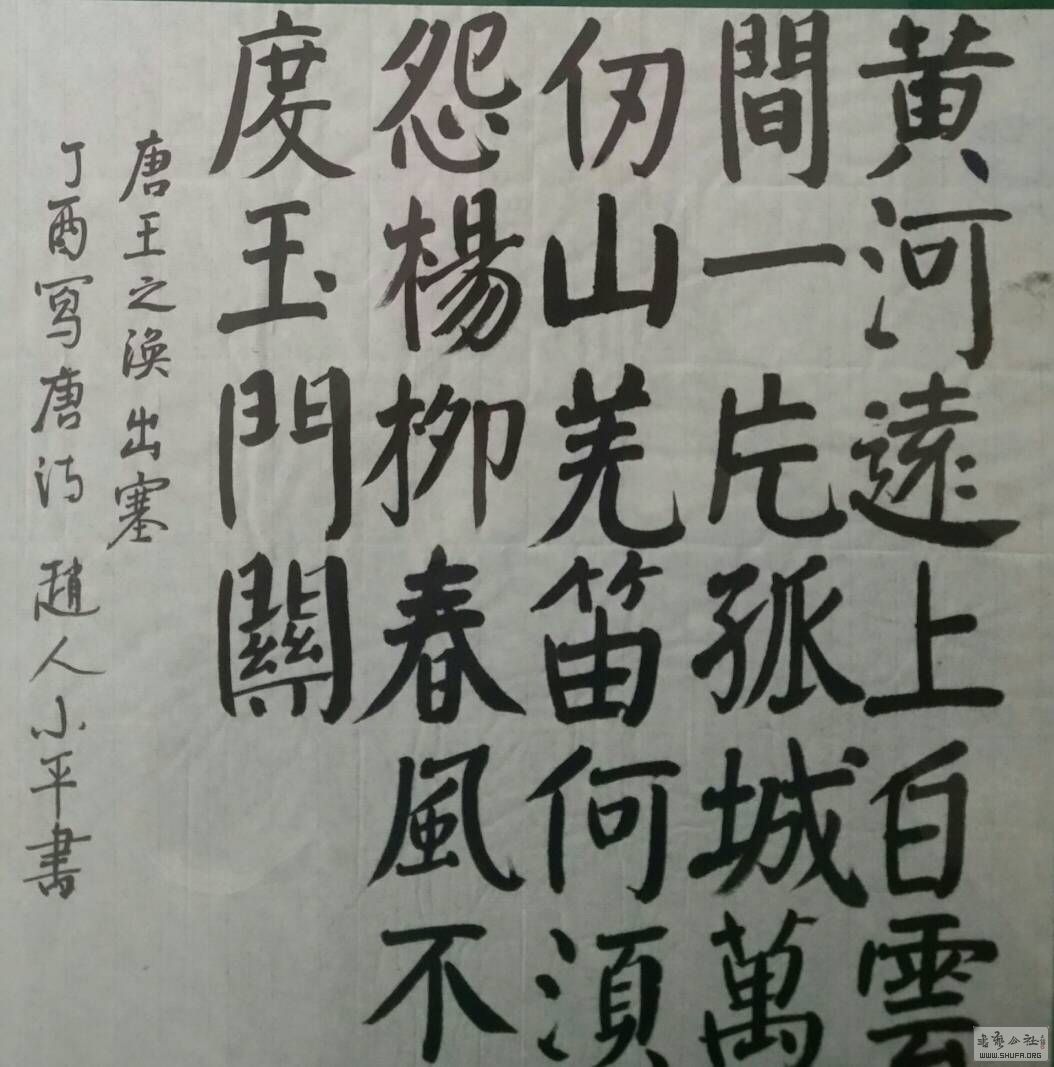 黄河遠上白雲
間一片孤城萬
仞山羌笛何須
怨楊柳春風不
度玉門關
唐王之渙出塞
丁酉写唐诗 趙人小平書
書藝公社
WWW.SHUFA.ORG